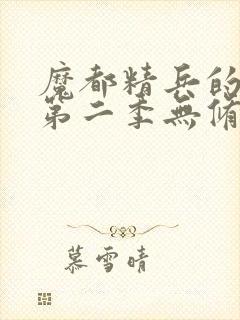 魔都精兵的
第二季無脩
慕雪晴